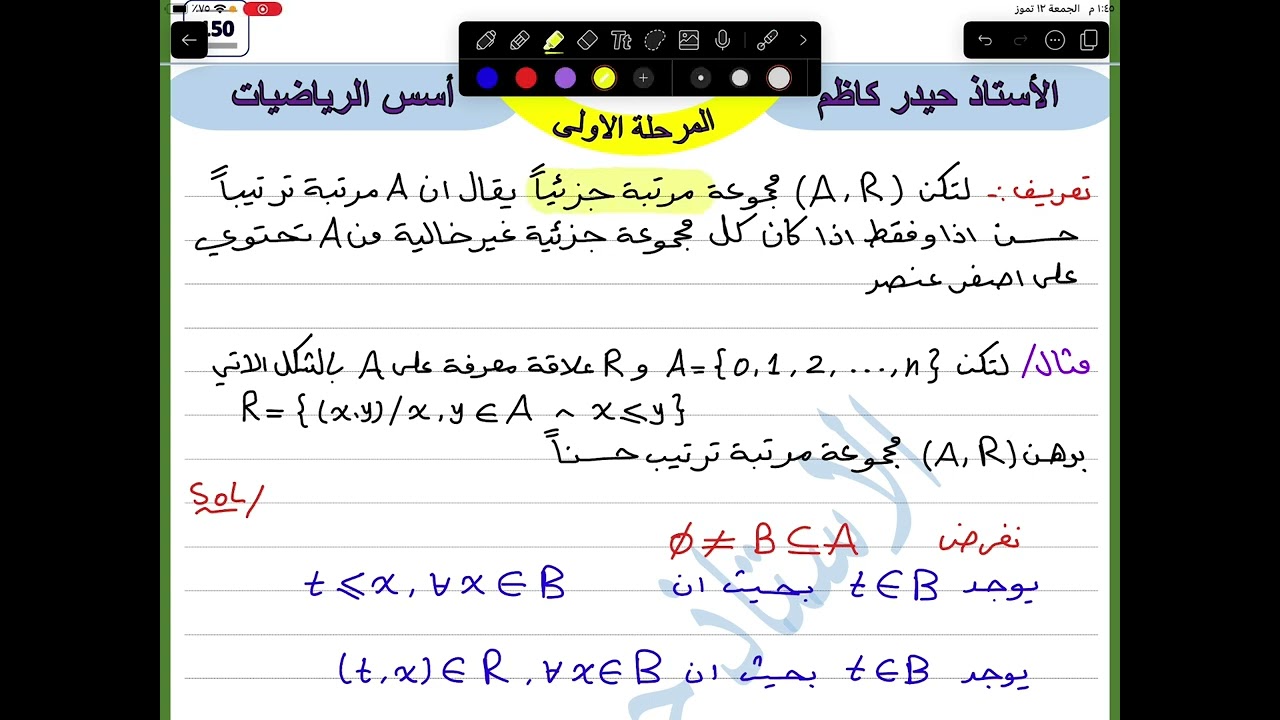 ١:٤٥ م الجمعة ١٢ تموز
٪٧٥
150
الأستاذ حيدر كاظم
أسس الرياضيات
المرحلة الاولى
تعريف:- لتكن (A, R) مجموعة مرتبة جزئياً يقال ان A مرتبة ترتيباً
حسن اذا وفقط اذا كان كل مجموعة جزئية غير خالية من A تحتوي
على اصغر عنصر
مثال/ لتكن A={0,1,2,...,n} و R علاقة معرفة على A بالشكل الاتي
R={(x.y)/x,y∈A ^ x≤y}
برهن (A,R) مجموعة مرتبة ترتيب حسناً
SOL/
نفرض ∅≠B⊆A
يوجد t∈B بحيث ان t≤x, ∀x∈B
يوجد t∈B بحيث ان (t,x)∈R, ∀x∈B